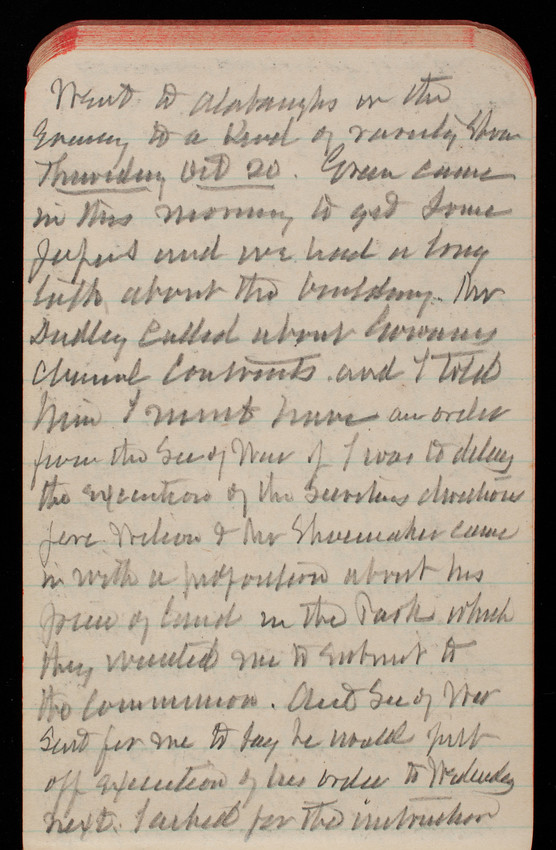 Went to Alabaughs in the
Evening to a kind of variety Show
Thursday Oct 20. Green came
in this morning to get some
papers and we had a long
talk about the building. Mr
Dudley called about Gowanus
channel Contracts. and I told
him I must have an order
from the Sec of War if I was to delay
the execution of the Secretarys directions
Jere Wilson & Mr Shoemaker came
in with a proposition about his
piece of land in the Park which
they wanted me to submit to
the Commission. Act Sec of War
Sent for me to say he would put
off execution of his order to Wednesday
next. I asked for the instruction